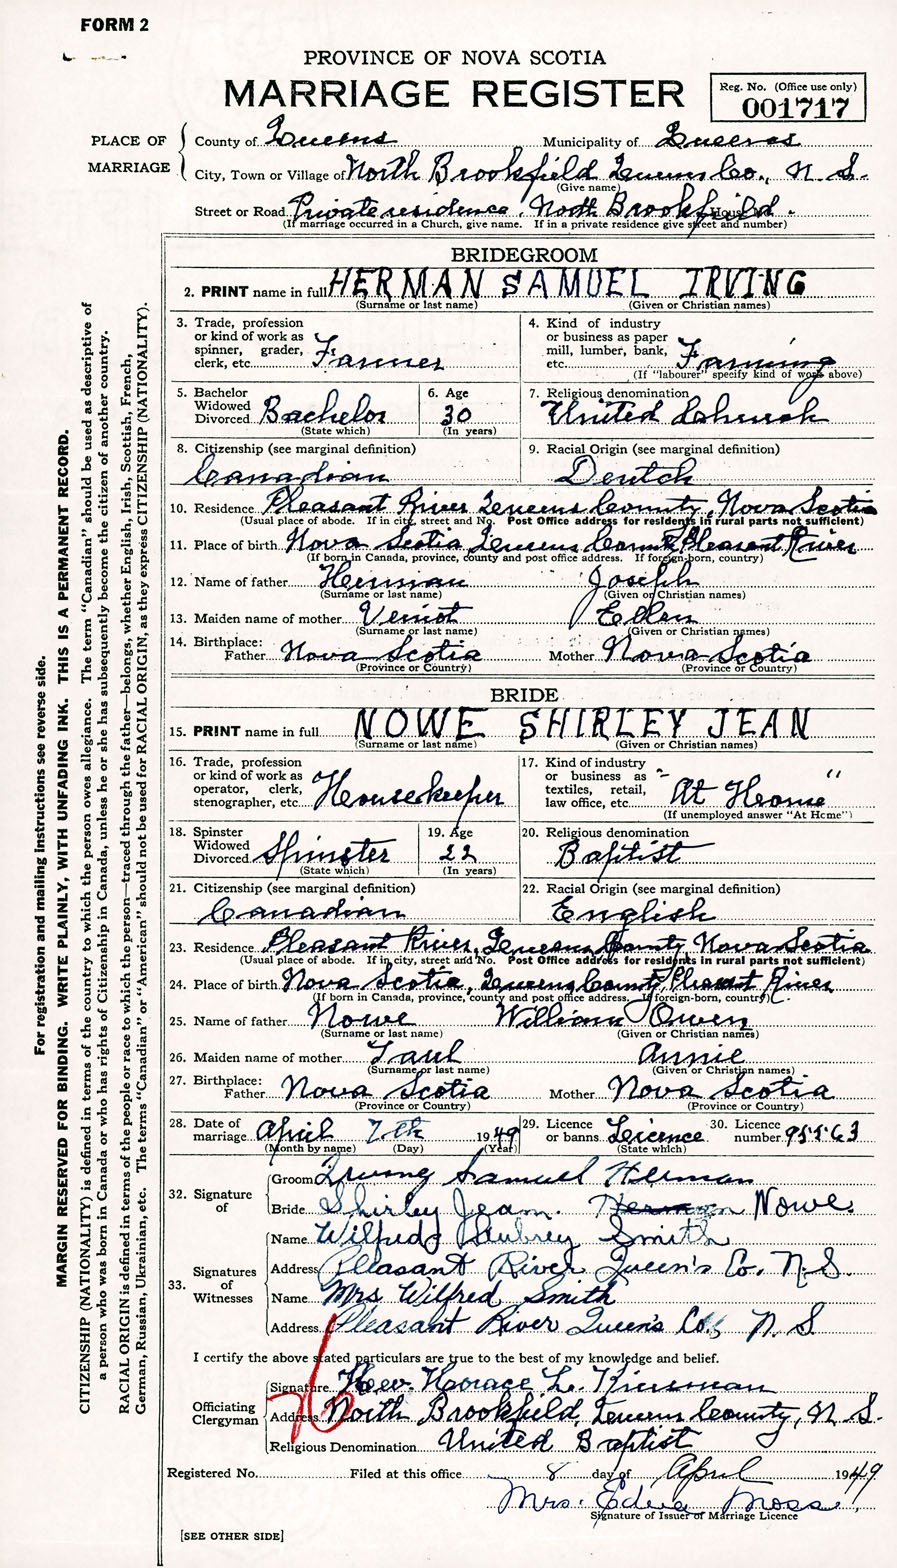 FORM 2
PROVINCE OF NOVA SCOTIA
MARRIAGE REGISTER
Reg. No. (Office use only)
001717
PLACE OF MARRIAGE
County of Queens Municipality of Queens
City, Town or Village of North Brookfield Queens Co., N. S.
(Give name)
Street or Road Private residence, North Brookfield. House No.
(If marriage occurred in a Church, give name. If in a private residence give street and number)
BRIDEGROOM
2. PRINT name in full HERMAN SAMUEL IRVING
(Surname or last name) (Given or Christian names)
3. Trade, profession or kind of work as spinner, grader, clerk, etc. Farmer
4. Kind of industry or business as paper mill, lumber, bank, etc. Farming
(If "labourer" specify kind of work above)
5. Bachelor Widowed Divorced Bachelor
(State which)
6. Age 30
(In years)
7. Religious denomination United Church
8. Citizenship (see marginal definition) Canadian
9. Racial Origin (see marginal definition) Deutch
10. Residence Pleasant River Queens County, Nova Scotia
(Usual place of abode. If in city, street and No. Post Office address for residents in rural parts not sufficient)
11. Place of birth Nova Scotia Queens County Pleasant River
(If born in Canada, province, county and post office address. If foreign-born, country)
12. Name of father Herman Joseph
(Surname or last name) (Given or Christian names)
13. Maiden name of mother Veniot Ellen
(Surname or last name) (Given or Christian names)
14. Birthplace: Father Nova Scotia Mother Nova Scotia
(Province or Country) (Province or Country)
BRIDE
15. PRINT name in full NOWE SHIRLEY JEAN
(Surname or last name) (Given or Christian names)
16. Trade, profession or kind of work as operator, clerk, stenographer, etc. Housekeeper
17. Kind of industry or business as textiles, retail, law office, etc. "At Home"
(If unemployed answer "At Home")
18. Spinster Widowed Divorced Spinster
(State which)
19. Age 22
(In years)
20. Religious denomination Baptist
21. Citizenship (see marginal definition) Canadian
22. Racial Origin (see marginal definition) English
23. Residence Pleasant River, Queens County Nova Scotia
(Usual place of abode. If in city, street and No. Post Office address for residents in rural parts not sufficient)
24. Place of birth Nova Scotia, Queens County, Pleasant River
(If born in Canada, province, county and post office address. If foreign-born, country)
25. Name of father Nowe William Owen
(Surname or last name) (Given or Christian names)
26. Maiden name of mother Annie
(Surname or last name) (Given or Christian names)
27. Birthplace: Father Nova Scotia Mother Nova Scotia
(Province or Country) (Province or Country)
28. Date of marriage April 7th 1949
(Month by name) (Day) (Year)
29. Licence or banns Licence
(State which)
30. Licence number
32. Signature of
Groom Irving Samuel Herman
Bride Shirley Jean Herman Nowe.
33. Signatures of Witnesses
Name Wilfred Aubrey Smith
Address Pleasant River Queen's Co. N.S.
Name Mrs Wilfred Smith
Address Pleasant River Queen's Co. N. S.
I certify the above stated particulars are true to the best of my knowledge and belief.
Officiating Clergyman
Signature Rev. Horace L. Kinsman
Address North Brookfield, Queens County, N. S.
Religious Denomination United Baptist
Registered No. Filed at this office 8 day of April 1949
Mrs.
Signature of Issuer of Marriage Licence
[SEE OTHER SIDE]
For registration and mailing instructions see reverse side.
MARGIN RESERVED FOR BINDING. WRITE PLAINLY, WITH UNFADING INK. THIS IS A PERMANENT RECORD.
CITIZENSHIP (NATIONALITY) is defined in terms of the country to which the person owes allegiance. The term "Canadian" should be used as descriptive of
a person who was born in Canada or who has rights of Citizenship in Canada, unless he or she has subsequently become the citizen of another country.
RACIAL ORIGIN is defined in terms of the people or race to which the person—traced through the father—belongs, whether English, Irish, Scottish, French,
German, Russian, Ukrainian, etc. The terms "Canadian" or "American" should not be used for RACIAL ORIGIN, as they express CITIZENSHIP (NATIONALITY).